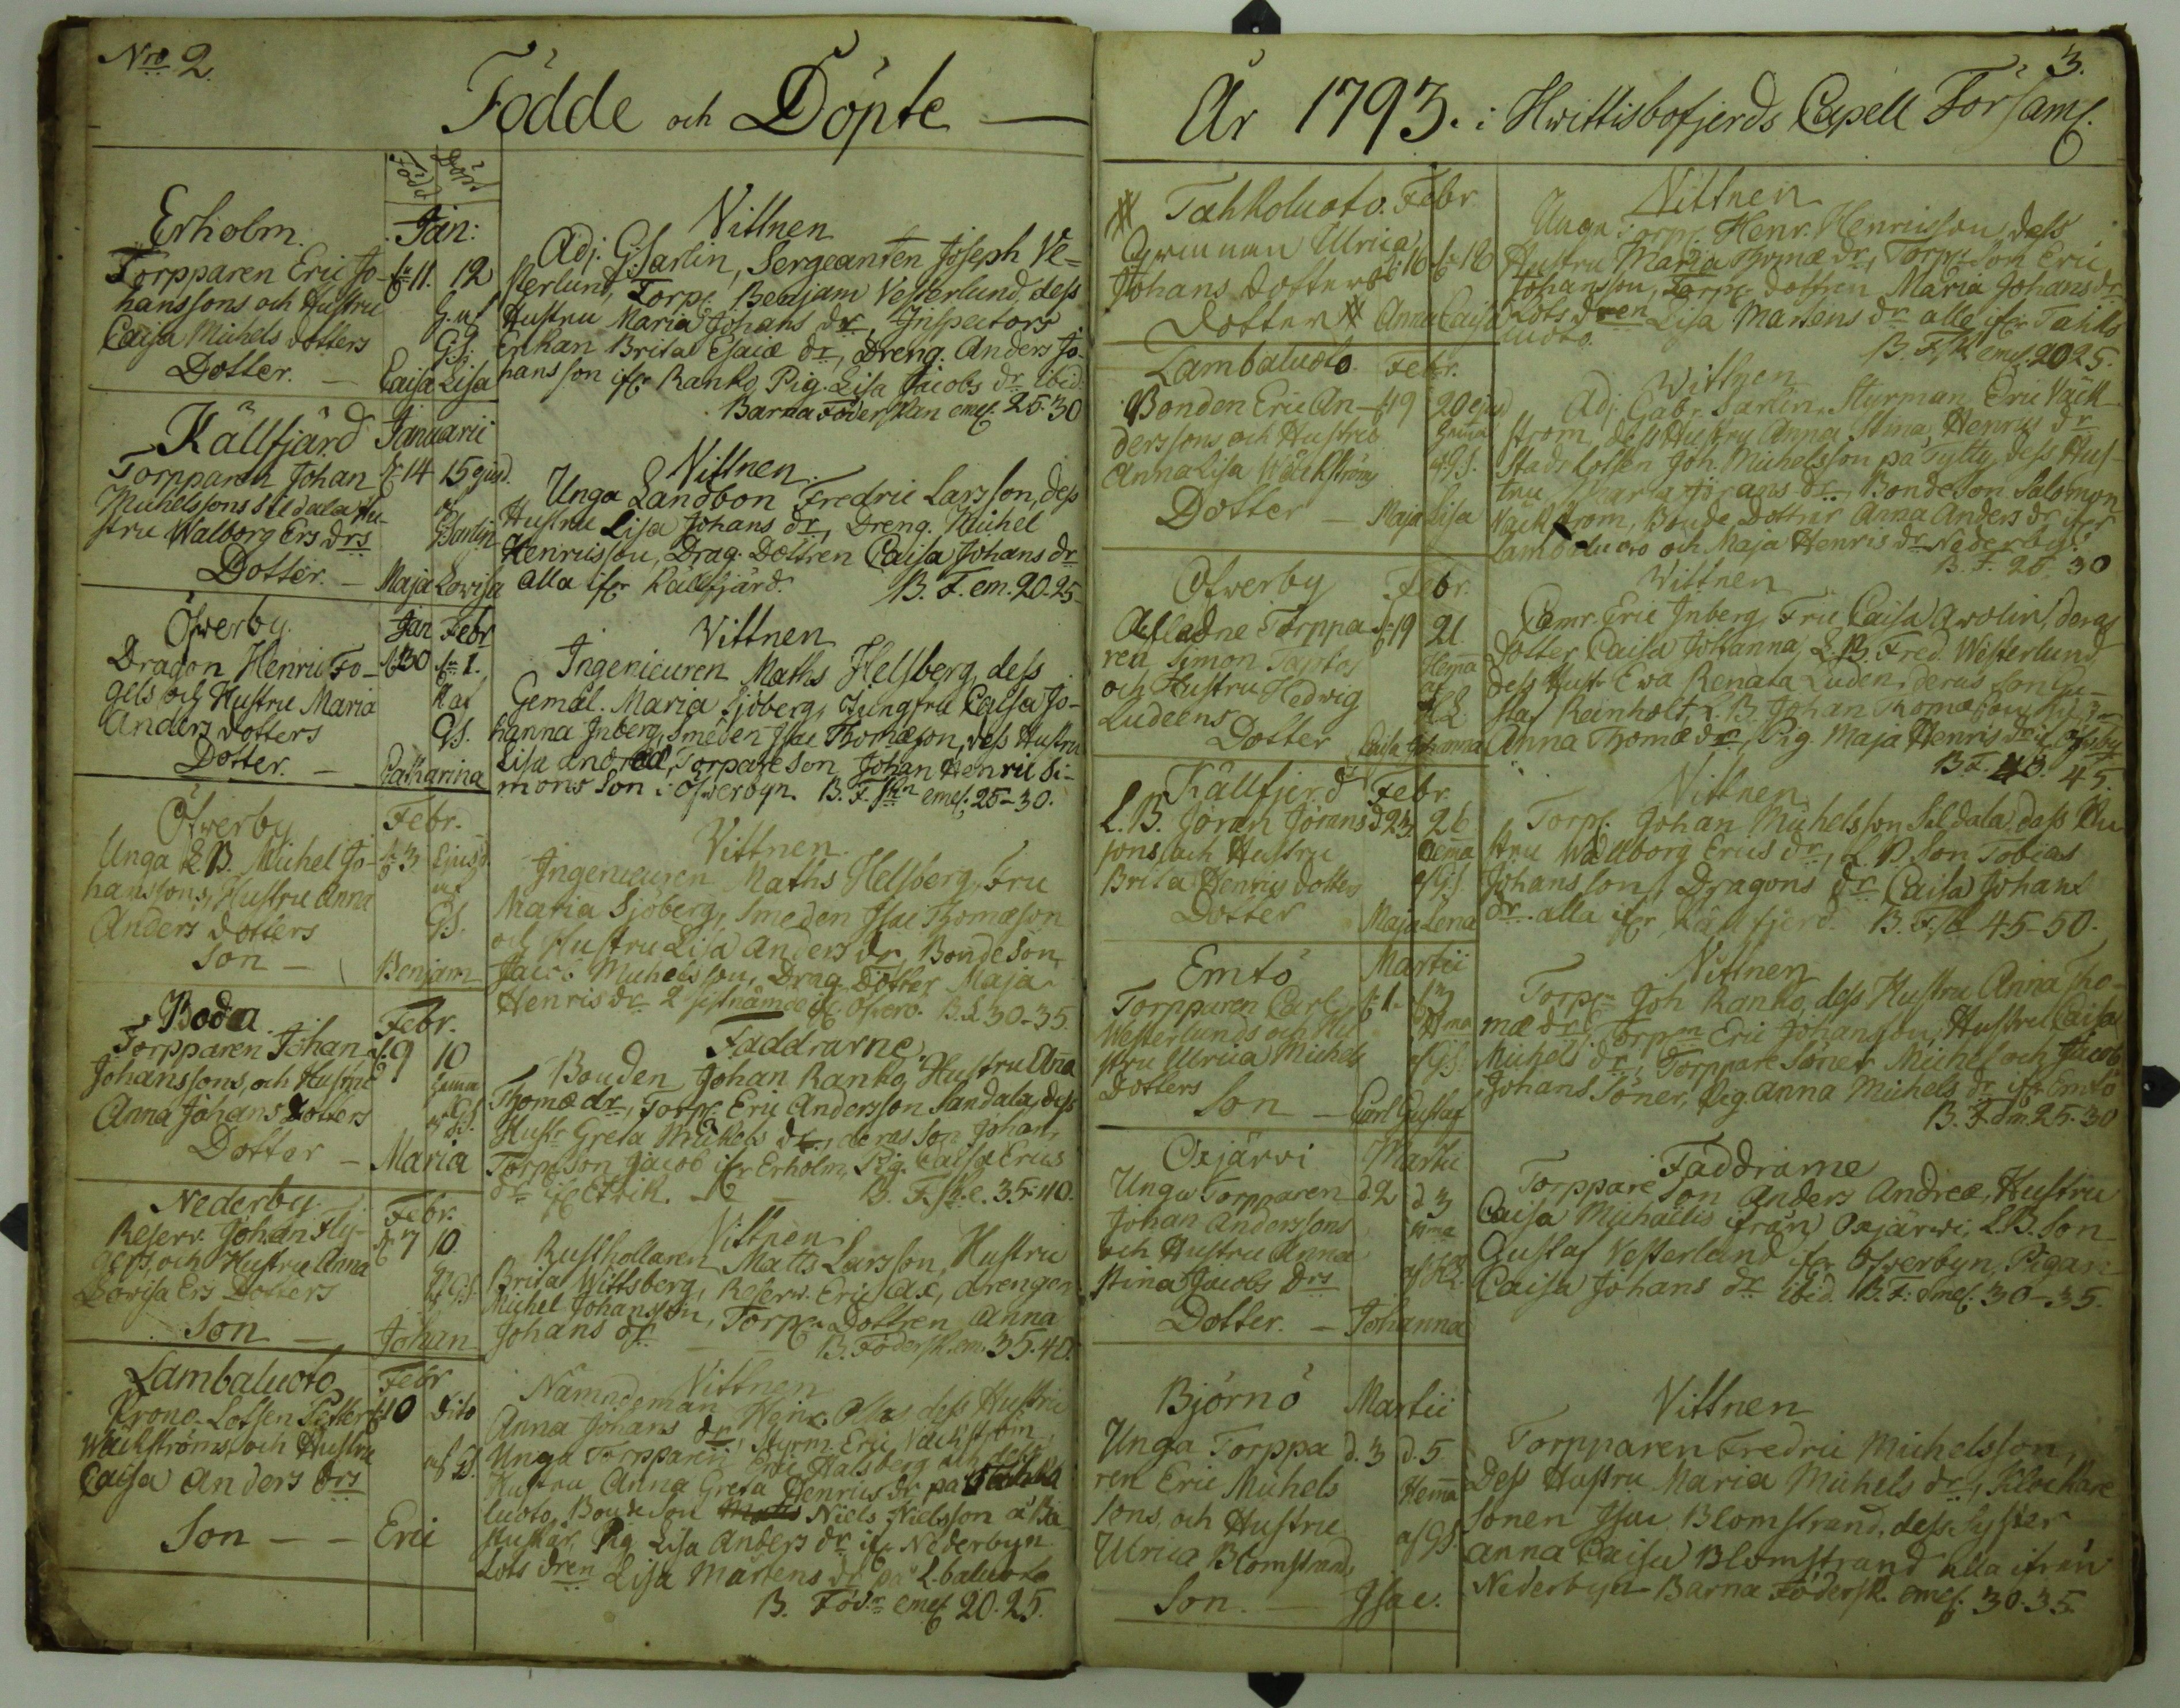 Nro 2.
Födde och Döpte —
Född
Döpt
Erholm.
Jan:
Torpparen Eric Jo-
hanssons och Hustru
Caisa Michels dotters
Dotter. —
d. 11. 12
G. af
GS.
Caisa Lisa
Vittnen
Adj. G. Sarlin, Sergeanten Joseph Ve=
sterlund, Torp. Benjam Vesterlund, dess
Hustru Maria Johans dr, Inspectors
Enkan Brita Esaiæ dr, Dreng. Anders Jo-
hansson ifr Ranko, Pig. Lisa Jacobs dr ibid.
Barna Föderskan emel. 25. 30
Källfjärd
Januarii
Torpparen Johan
Michelssons Sildala Hu-
stru Walborg Ers drs
Dotter. —
d. 14 15 ejusd.
af
GSarlin
Maja Lovisa
Vittnen.
Unga Landbon Fredric Larsson, dess
Hustru Lisa Johans dr, Dreng. Michel
Henricsson, Drag. Dottren Caisa Johans dr
alla ifr Källfjärd.
B. F. em. 20-25
Öfwerby.
Jan Febr
Dragon Henric Fo-
gels och Hustru Maria
Anders dotters
Dotter. —
d. 30 d. 1.
af
GS.
Catharina
Vittnen
Ingenieuren Maths Helsberg, dess
Gemål. Maria Sjöberg, Jungfru Caisa Jo-
hanna Inberg, Smeden Isac Thomæson, dess Hustru
Lisa Andreæ, Torpare Son Johan Henric Si-
mons Son i Öfwerbyn. B. F. Skn emel. 25-30.
Öfwerby
Febr.
Unga L. B. Michel Jo-
hanssons, Hustru Anna
Anders dotters
Son —
d. 3 Ejusd.
af
GS.
Benjam
Vittnen.
Ingenieuren Maths Helsberg, Fru
Maria Sjöberg, Smeden Isac Thomæson
och Hustru Lisa Anders dr, Bonde Son
Jacob Michelsson, Drag. Dotter Maja
Henrics dr 2 sistnämde ifr Öfverb. B. F. 30-35.
Boda
Febr.
Torpparen Johan
Johanssons, och Hustru
Anna Johans Dotters
Dotter —
d. 9 10
hemma
af GS.
Maria
Faddrarne.
Bonden Johan Ranko, Hustru Anna
Thomæ dr, Torp. Eric Andersson Sandala, dess
Hustr Greta Michels dr, deras Son Johan,
Torp. Son Jacob ifr Erholm, Pig. Caisa Erics
dr ifr Etrik. — — B. F. Sk. e. 35-40.
Nederby.
Febr.
Reserv. Johan Fly-
gers, och Hustru Anna
Lovisa Ers Dotters
Son —
d. 7 10
af GS.
Johan
Vittnen
Rusthollaren Matts Larsson, Hustru
Brita Wittsberg, Reserv. Eric Ax, drengen
Michel Johansson, Torp. Dottren Anna
Johans dr — — B. Födersk. em. 35-40.
Lambaluoto
Febr
Krono-Lotsen Petter
Wäckströms, och Hustru
Caisa Anders drs
Son — —
d. 10 dito
af GS.
Eric
Vittnen
Nämndeman Henr. Olas, dess Hustru
Anna Johans dr, Styrm. Eric Väckström,
Unga Torpparen Eric Halsberg och dess
Hustru Anna Greta Henrics dr på Tahko
luoto, Bonde Son Niels Nielsson
Pig. Lisa Anders dr ifr Nederbyn
Lots dren Lisa Mårtens dr på L-baluoto
B. Föd:r emel 20. 25.
3.
År 1793. i Hwittisbofjerds Capell Församl.
# Tahkoluoto. Febr.
Qwinnan Ulrica
Johans Dotters
Dotter #
d. 16 d. 18
Anna Caisa
Vittnen
Unga Torp. Henr. Henricsson, dess
Hustru Maria Thomæ dr, Torp. Son Eric
Johansson, Torp. dottren Maria Johans dr
Lots dren Lisa Mårtens dr alle ifr Tahko
luoto.
B. F. Sk emel. 20 25.
Lambaluoto. Febr.
Bonden Eric An-
derssons och Hustru
Anna Lisa Wäckströms
Dotter —
d. 19 20 ejusd
hemma
af GS.
Maja Lisa
Wittnen
Adj. Gabr. Sarlin, Styrman Eric Väck-
ström, dess Hustru Anna Stina Henrics dr
Stads Lotsen Joh. Michelsson på Tytty, dess Hus-
tru Maria Jörans dr, Bonde Son Salomon
Väckström, Bonde Dottrar Anna Anders dr ifr
Lambaluoto och Maja Henrics dr Nederby.
B. F. 25. 30
Öfwerby
Febr.
Aflidne Torppa-
ren Simon Taptos
och Hustru Hedwig
Ludeens
Dotter
d. 19 21.
Hemma
af
Caisa Johanna
Vittnen
Camr. Eric Inberg, Fru Caisa Avolin, deras
dotter Caisa Johanna, L. B. Fred. Westerlund,
dess Hustr Ewa Renata Luden, deras Son Gu-
staf Reinholt, L. B. Johan Thomæson,
Anna Thomæ dr, Pig. Maja Henrics dr i Öfwerby
B. F. 40. 45.
Källfjerd Febr.
L. B. Jöran Jörans-
sons, och Hustru
Brita Henrics dotters
Dotter
d. 23. 26
hemma
af GS.
Maja Lena
Vittnen
Torp. Johan Michelsson Sildala, dess Hu
stru Wallborg Erics dr, L. B. Son Tobias
Johansson, Dragons dr Caisa Johans
dr. alla ifr Källfjerd. B. F. sk 45-50.
Emtö
Martii
Torpparen Carl
Westerlunds och Hu
stru Ulrica Michels
Dotters
Son —
d. 1. d. 3
Hma
af GS.
Carl Gustaf
Vittnen
Torp. Joh Ranko, dess Hustru Anna Tho-
mæ dr, Torpn Eric Johansson, Hustru Caisa
Michels dr, Torppare Söner Michel och Jacob
Johans Söner, Pig. Anna Michels dr ifr Emtö
B. F. em. 25-30
Oxjärvi
Martii
Unga Torpparen
Johan Anderssons
och Hustru Anna
Stina Jacobs Drs
Dotter. —
d. 2 d. 3
hma
af
Johanna
Faddrarne
Torppare Son Anders Andreæ, Hustru
Caisa Michaelis ifrån Oxjärwi, L. B. Son
Gustaf Vesterlund ifr Öfwerbyn, Pigan
Caisa Johans dr ibid. B. F. emel. 30-35.
Björnö Martii
Unga Torppa
ren Eric Michels
sons, och Hustru
Ulrica Blomstrands
Son. —
d. 3 d. 5.
Hemma
af GS.
Isac.
Vittnen
Torpparen Fredric Michelsson,
Dess Hustru Maria Michels dr, Klockare
Sonen Isac Blomstrand, dess Syster
Anna Caisa Blomstrand alla ifrån
Nederbyn Barna Födersk. emel. 30. 35.